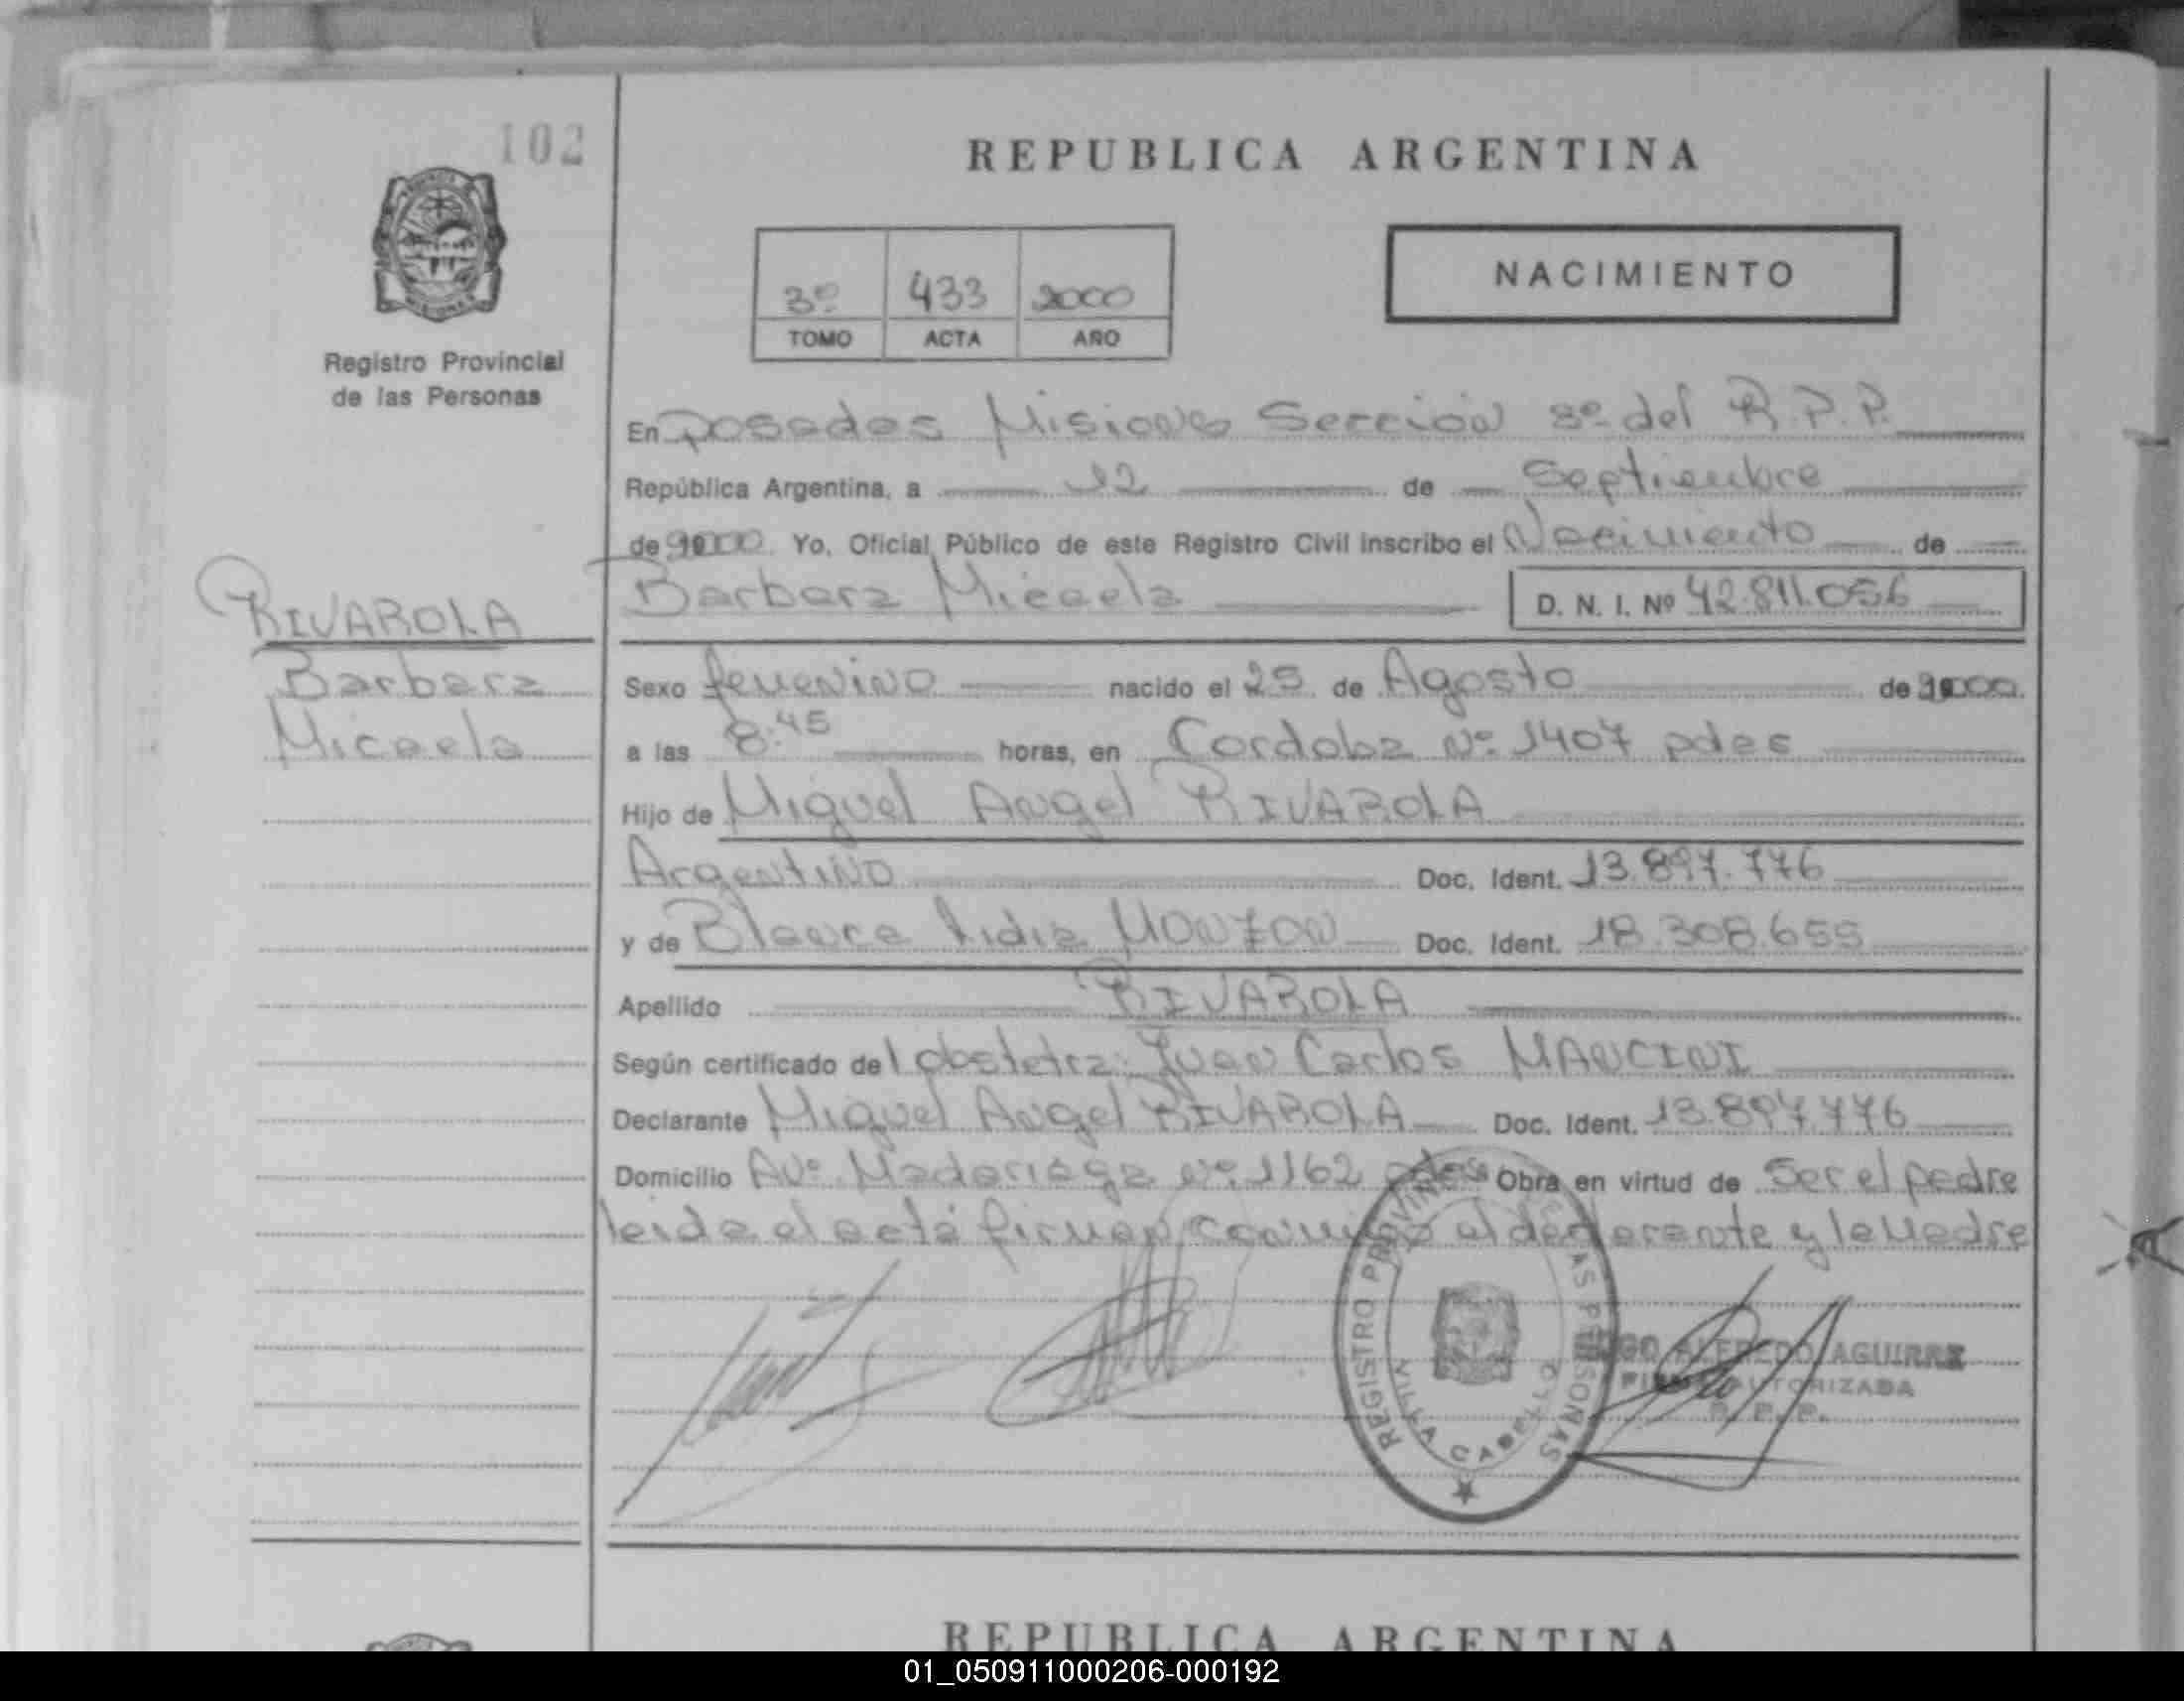 102
REPUBLICA ARGENTINA
NACIMIENTO
3º 433 2000
TOMO ACTA AÑO
Registro Provincial
de las Personas
En Posadas Misiones Sección 8º del R.P.P.
República Argentina, a 12 de Septiembre
de 2000. Yo, Oficial Público de este Registro Civil inscribo el Nacimiento de
Barbara Micaela D. N. I. Nº 42.811.056
RIVAROLA
Barbara
Micaela
Sexo femenino nacido el 25 de Agosto de 2000.
a las 8:45 horas, en Cordoba Nº 1407 pdas
Hijo de Miguel Angel RIVAROLA
Argentino Doc. Ident. 13.897.776
y de Blanca Lidia MONZON Doc. Ident. 18.308.655
Apellido RIVAROLA
Según certificado de l obstetra: Juan Carlos MANCINI
Declarante Miguel Angel RIVAROLA Doc. Ident. 13.897.776
Domicilio Avº Madariaga Nº 1162 pdas Obra en virtud de Ser el padre
leida el acta firman conmigo el declarante y la Madre
REGISTRO PROVINCIAL DE LAS PERSONAS
VILLA CABELLO
ALFREDO AGUIRRE
FIRMA AUTORIZADA
R. P. P.
REPUBLICA ARGENTINA
01_050911000206-000192